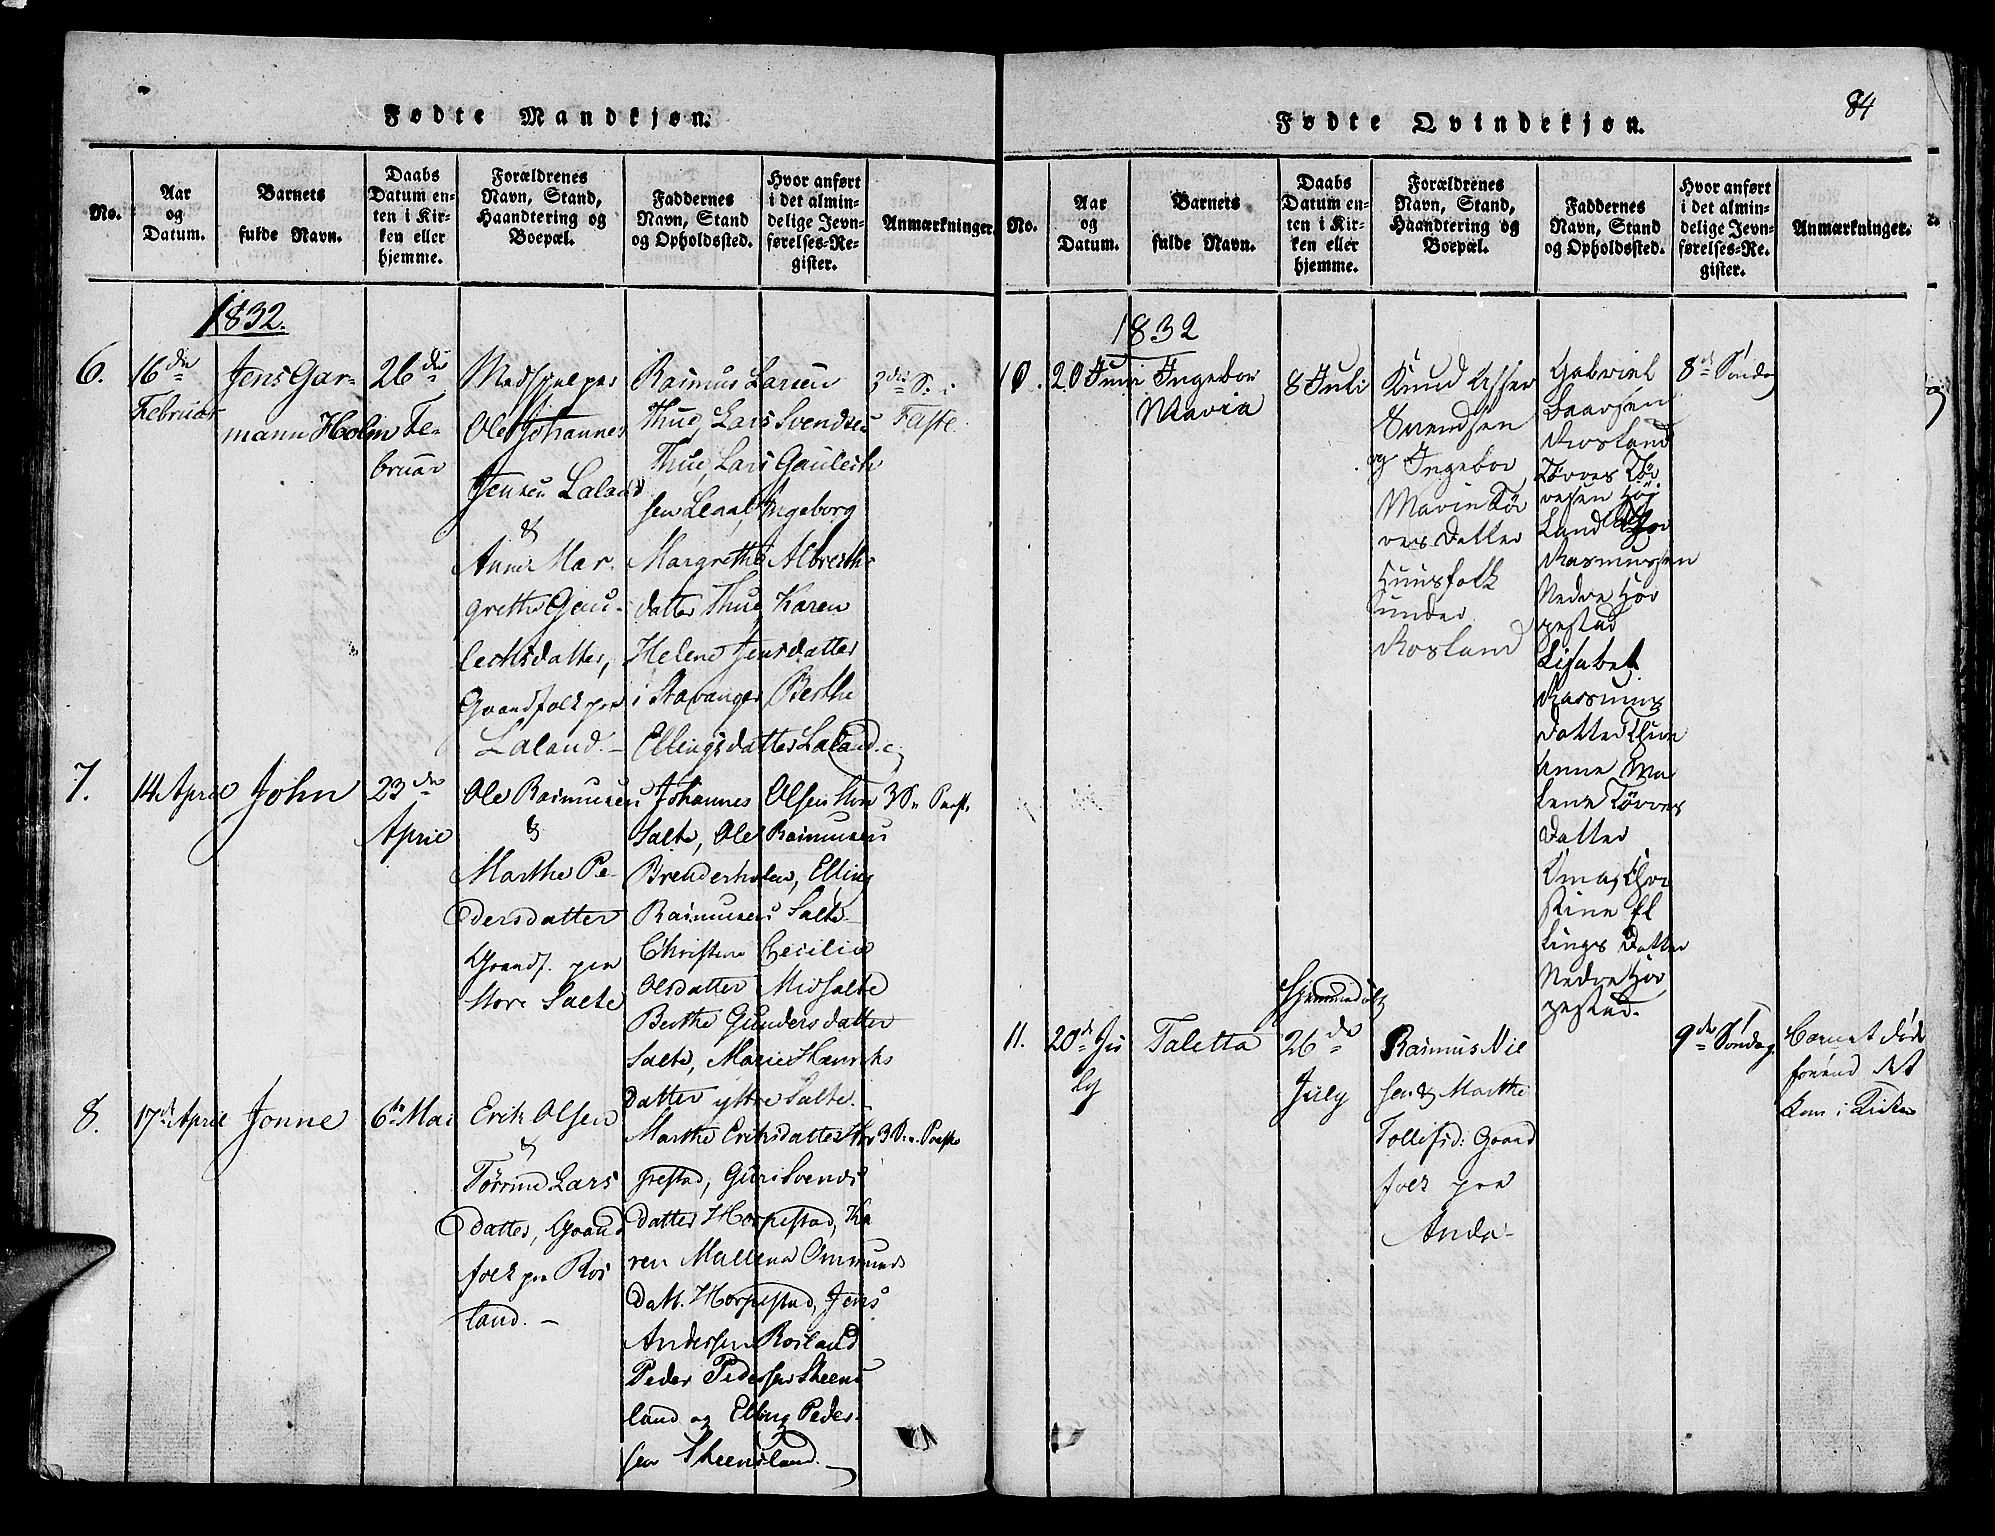 Fødte Mandkjøn.
No.
Aar
og
Datum.
Barnets
fulde Navn.
Daabs
Datum en-
ten i Kir-
ken eller
hjemme.
Forældrenes
Navn, Stand,
Haandtering og
Boepæl.
Faddernes
Navn, Stand
og Opholdssted.
Hvor anført
i det almin-
delige Jevn-
førelses-Re-
gister.
Anmærkninger.
1832.
6.
16de
Februar
Jens Gar-
mann Holm
26de
Fe-
bruar
Medhjelper
Ole Johannes
Jensen Laland
&
Anne Mar-
grethe Gau-
lechsdatter,
Gaardfolk paa
Laland. -
Rasmus Larsen
Thue, Lars Svendsen
Thue, Lars Gaulech-
sen Leaal, Ingeborg
Margrethe Albrechts-
datter Thue, Karen
Helene Jensdatter
i Stavanger Berthe
Ellingsdatter Laland.
3die S. i
Faste
7.
14 April
John
23de
April
Ole Rasmusen
&
Marthe Pe-
dersdatter
Gaardf. paa
Store Salte
Johannes Olsen Store
Salte, Ole Rasmusen
Brenderholen, Elling
Rasmusen Salte
Christine Cecilie
Olsdatter Midsalte
Berthe Gundersdatter
Salte, Marie Henrichs
datter yttre Salte.
3 S. Paaske
8.
17de April
Jonne
6te Mai
Erik Olsen
&
Tørrine Lars
datter, Gaard
folk paa Ros
land. -
Marthe Eriksdatter Hor
pestad, Guri Svends
datter Horpestad, Ka
ren Mallena Ommunds
datt. Horpestad, Jens
Andersen Rosland
Peder Pedersen Skeens
land og Elling Peder-
sen Skeensland.
3 S. Paaske
Fødte Qvindekjøn.
84
No.
Aar
og
Datum.
Barnets
fulde Navn.
Daabs
Datum en-
ten i Kir-
ken eller
hjemme.
Forældrenes
Navn, Stand,
Haandtering og
Boepæl.
Faddernes
Navn, Stand
og Opholdssted.
Hvor anført
i det almin-
delige Jevn-
førelses-Re-
gister.
Anmærkninger.
1832
10.
20 Juni
Ingebor
Maria
8 Juli
Knud
Svendsen
og Ingebor
Marie Tør
res Datter
Huusfolk
under
Rosland
Gabriel
Laarsen
Rosland
Tørres Tør
resen Høj
Land
Rasmussen
Nedre Hor
pestad
Lisabet
Rasmus
datter Thue
Anne Ma
lene Tørres
Datter
Chri
stine El
lings Datter
Nedre Hor
pestad.
8de Søndag
11.
20de Ju
ly
Taletta
Hjemmedøbt
26de
July
Rasmus Niel
sen & Marthe
Tollefsd: Gaard
folk paa
Anda-
9de Søndag
Barnet døde
forend det
kom i Kirken